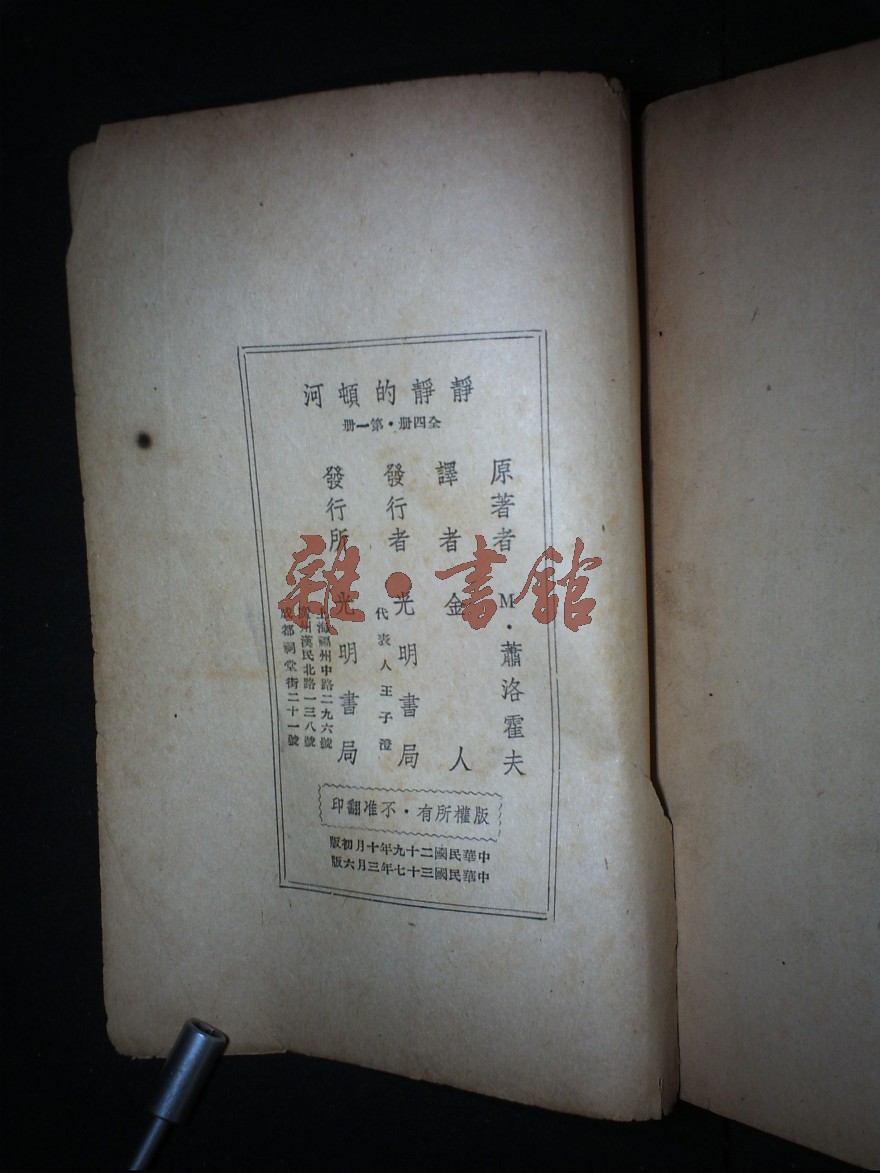 靜靜的頓河
全四册・第一册
原著者 M・蕭洛霍夫
譯者 金人
發行者 光明書局
代表人王子澄
發行所 光明書局
上海福州中路二九六號
廣州漢民北路一三八號
成都祠堂街二十一號
版權所有・不准翻印
中華民國二十九年十月初版
中華民國三十七年三月六版
雜・書館